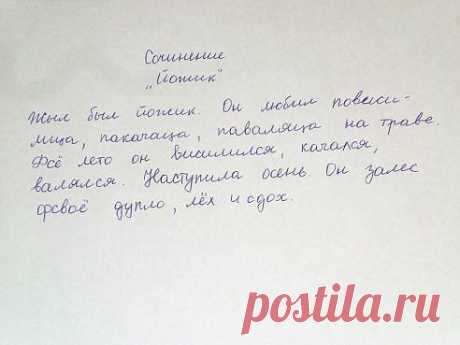 Сочинение
„Йожик"
Жыл был йожик. Он любил повеси-
лица, пакачаца, паваляца на траве.
Фсё лето он висилился, качался,
валялся. Наступила осень. Он залес
фсваё дупло, лёх и сдох.
postila.ru